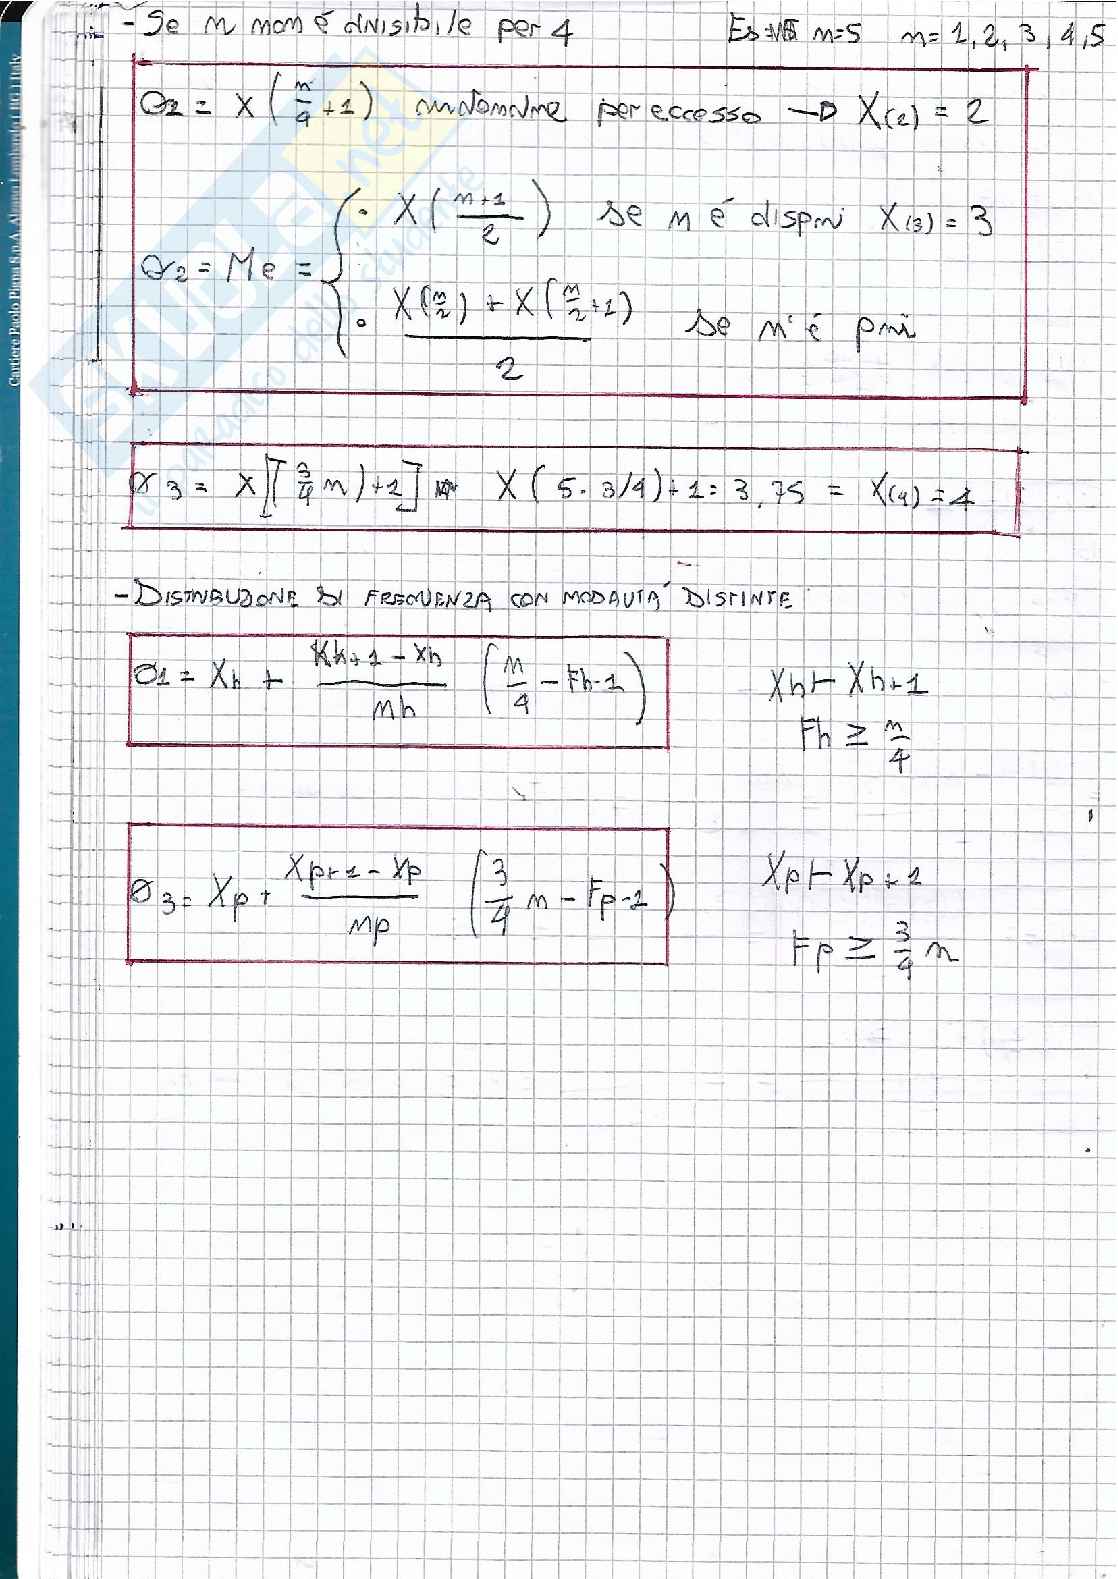 - Se n non é divisibile per 4 Es: n=5 n= 1, 2, 3, 4, 5
Q1 = X (n/4 + 1) per eccesso → X(2) = 2
Q2 = Me = { • X ((n+1)/2) se n é dispari X(3) = 3
• (X(n/2) + X(n/2+1))/2 se n é pari
Q3 = X [(3/4 n)+1] X (5 · 3/4)+1 = 3,75 = X(4) = 4
- DISTRIBUZIONE DI FREQUENZA CON MODALITÁ DISTINTE
Q1 = Xh + (Xh+1 - Xh)/nh (n/4 - Fh-1) Xh ⊢ Xh+1
Fh ≥ n/4
Q3 = Xp + (Xp+1 - Xp)/np (3/4 n - Fp-1) Xp ⊢ Xp+1
Fp ≥ 3/4 n
Cartiere Paolo Pigna S.p.A. Alzano Lombardo ( BG ) Italy
SKUOLA.net